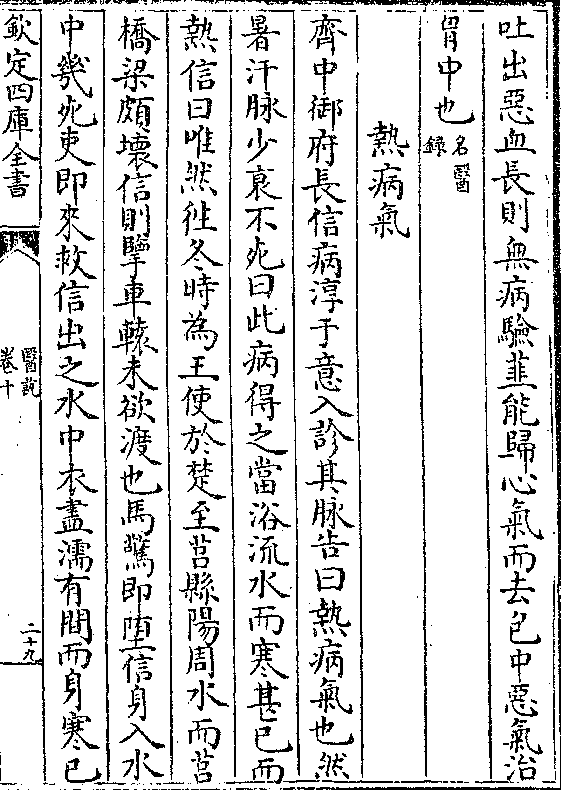 吐出惡血長則無病驗韭能歸心氣而去包中惡氣治
胃中也名醫錄
熱病氣
齊中御府長信病淳于意入診其脉告曰熱病氣也然
暑汗脉少衰不死曰此病得之當浴流水而寒甚已而
熱信曰唯然往冬時為王使於楚至莒縣陽周水而莒
橋梁頗壞信則擥車轅未欲渡也馬驚即墮信身入水
中幾死吏即來救信出之水中衣盡濡有間而身寒已
欽定四庫全書
醫說
卷十
二十九